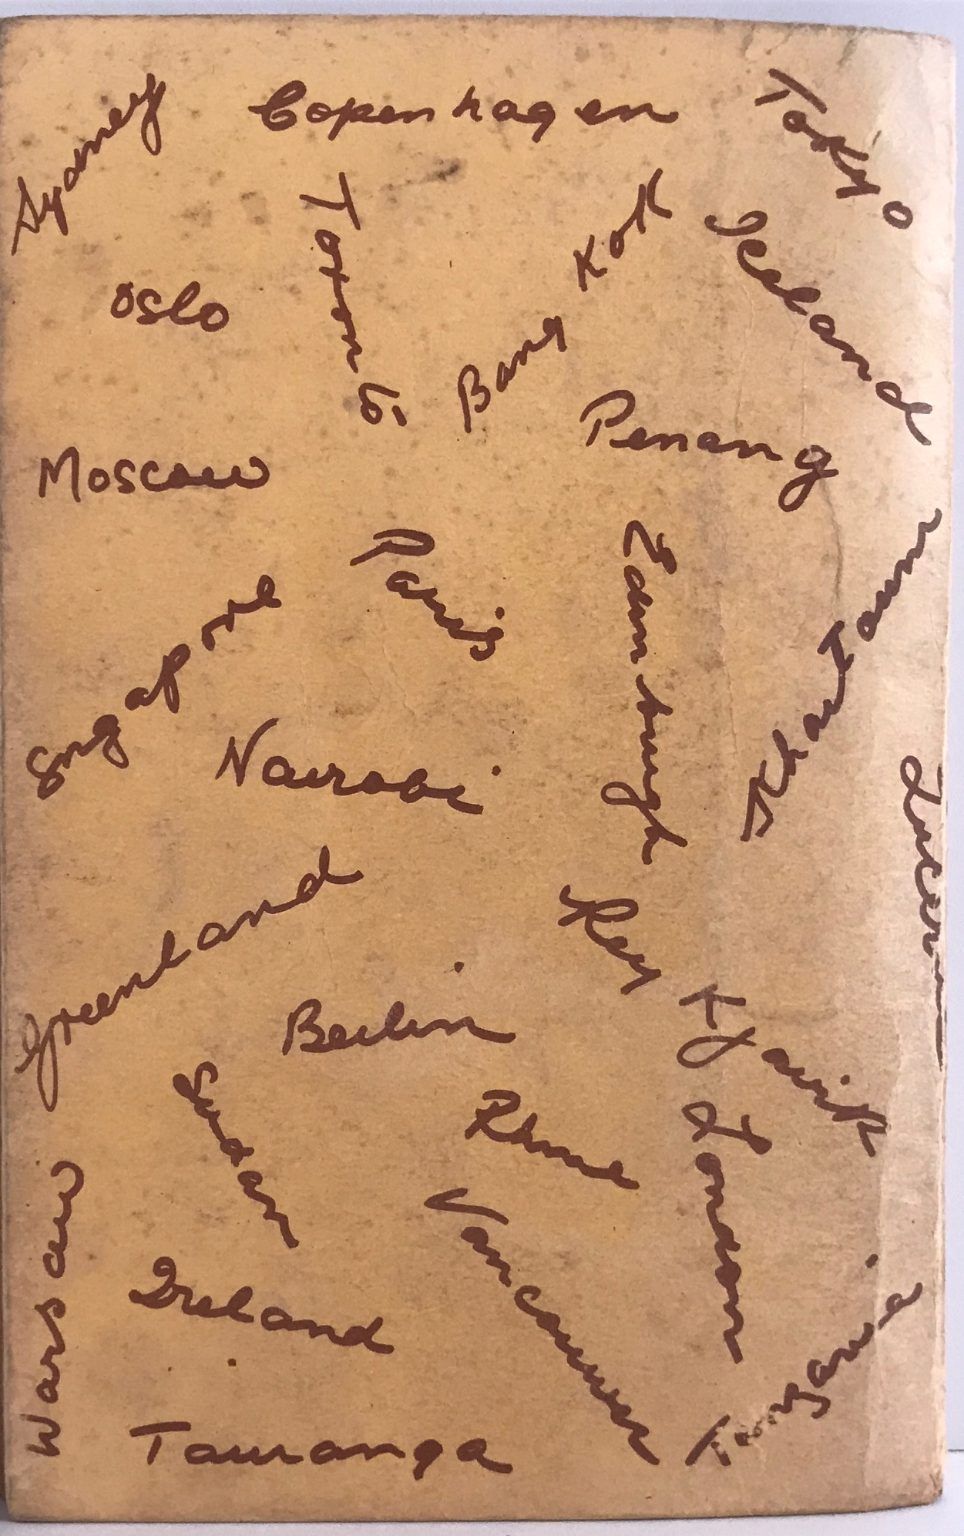 Sydney
Copenhagen
Tokyo
Toronto
Bang kok
Iceland
Oslo
Penang
Moscow
Paris
Edinburgh
Khartoum
Singapore
Nairobi
Lucerne
Greenland
Rey Kjavik
Berlin
Sudan
Rhine
London
Warsaw
Vancouver
Ireland
Tanzania
Tauranga